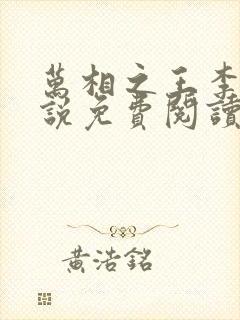 萬相之王李
說免費閱讀
黃浩銘